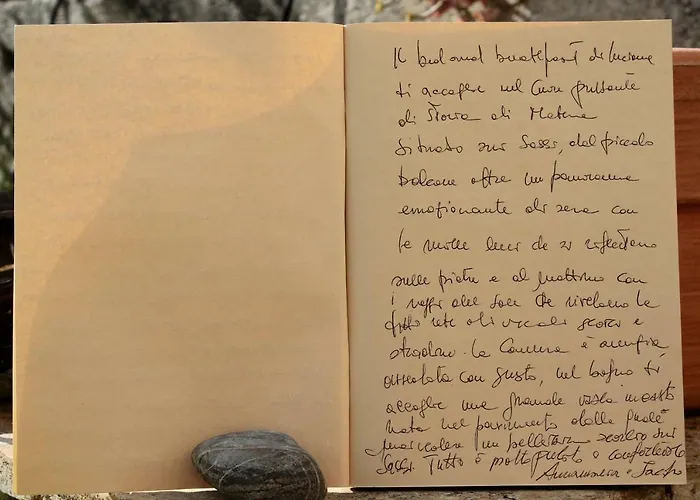 Il bed and breakfast di Luciana
ti accoglie nel cuore pulsante
di storia di Matera
Situato sui Sassi, dal piccolo
balcone offre un panorama
emozionante di sera con
le mille luci che si riflettono
sulle pietre e al mattino con
i raggi del sole che rivelano la
fitta rete di vicoli scorci e
stradine. La Camera è ampia
arredata con gusto, nel bagno ti
accoglie una grande vasca incasto
nata nel pavimento dalla quale
puoi vedere un bellissimo scorcio sui
Sassi Tutto è molto pulito e confortevole
Annamaria e